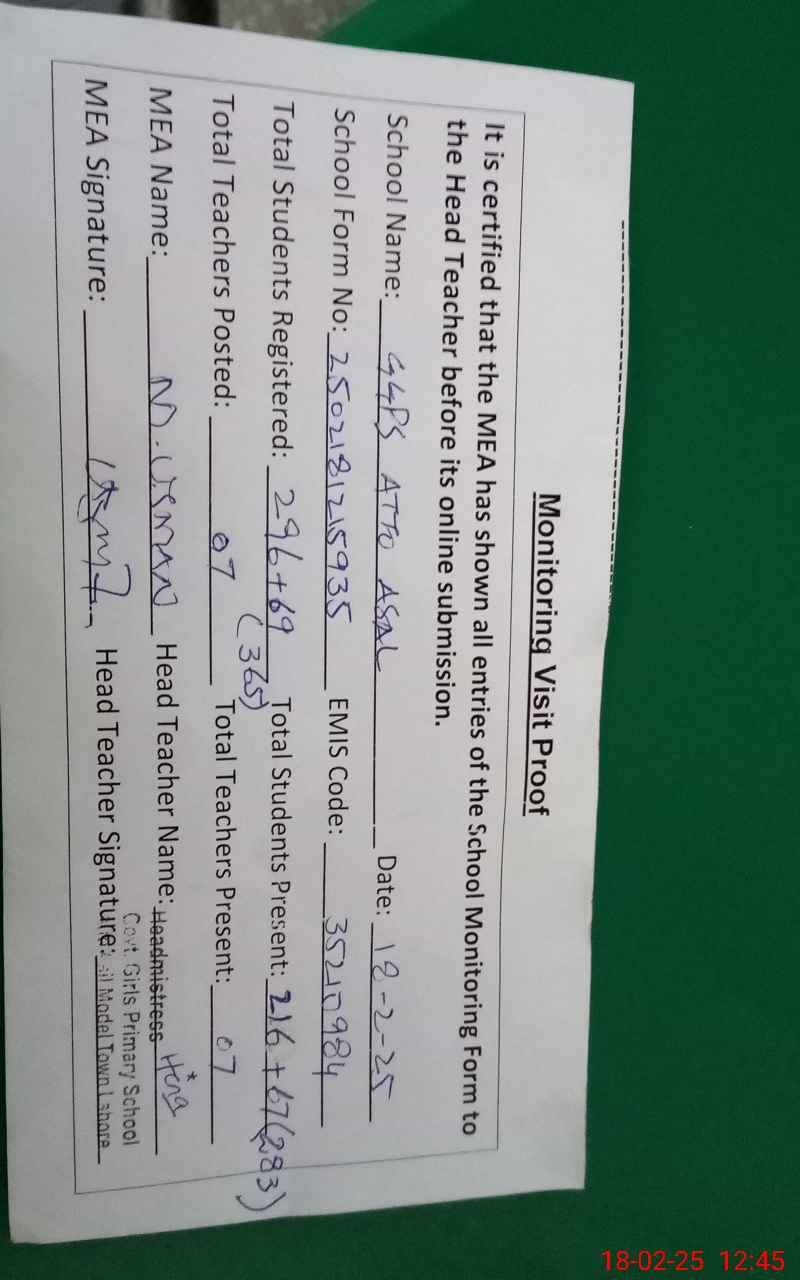 Monitoring Visit Proof
It is certified that the MEA has shown all entries of the School Monitoring Form to
the Head Teacher before its online submission.
School Name: GGPS ATTO ASAL Date: 18-2-25
School Form No: 2502181215935 EMIS Code: 35210984
Total Students Registered: 296+69 (365) Total Students Present: 216+67(283)
Total Teachers Posted: 07 Total Teachers Present: 07
MEA Name: M.USMAN Head Teacher Name: Headmistress Hina
Govt. Girls Primary School
MEA Signature: Head Teacher Signature: Model Town Lahore
18-02-25 12:45